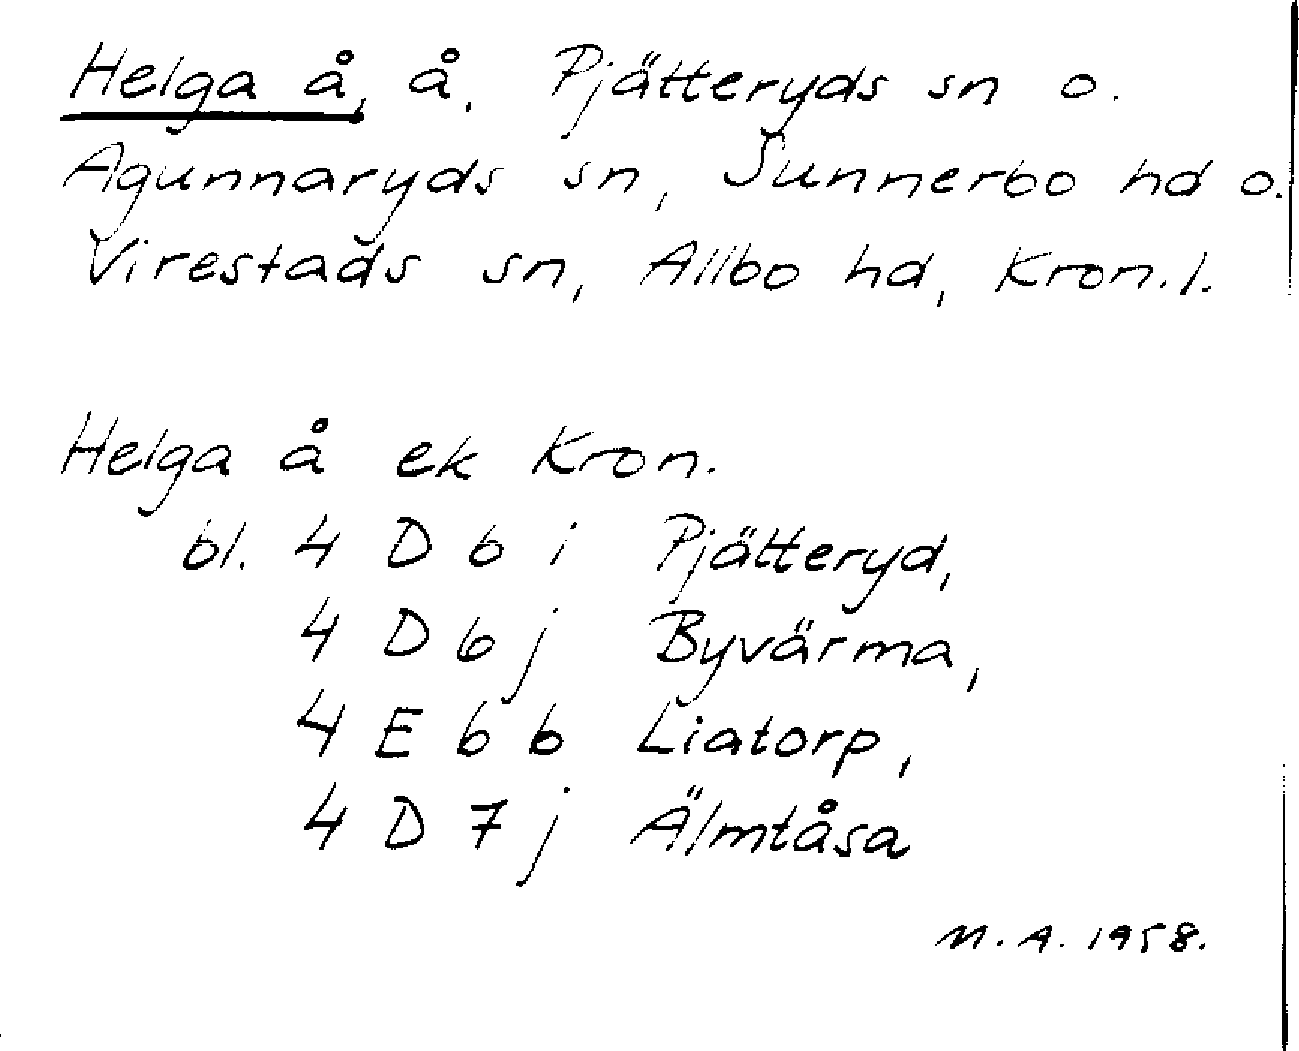 Helga å, å, Pjätteryds sn o.
Agunnaryds sn, Sunnerbo hd o.
Virestads sn, Allbo hd, Kron.l.
Helga å ek Kron.
bl. 4 D 6 i Pjätteryd,
4 D 6 j Byvärma,
4 E 6 b Liatorp,
4 D 7 j Älmtåsa
M.A. 1958.